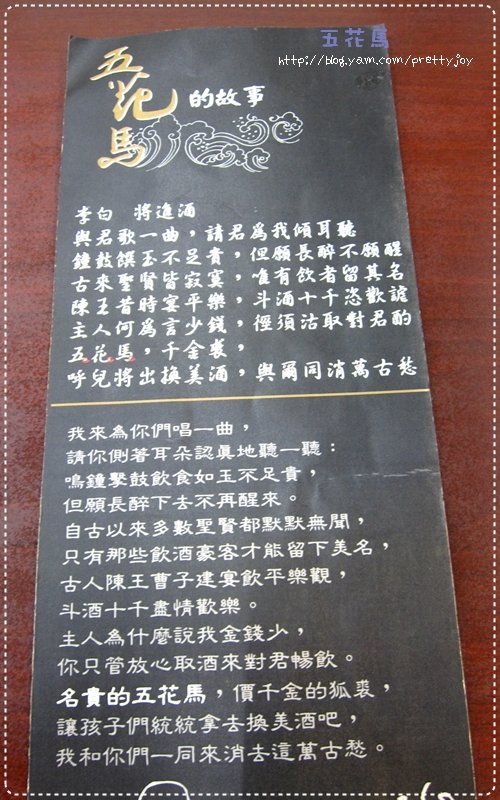 五花馬
http://blog.yam.com/prettyjoy
五花馬
的故事
李白 將進酒
與君歌一曲，請君為我傾耳聽
鐘鼓饌玉不足貴，但願長醉不願醒
古來聖賢皆寂寞，唯有飲者留其名
陳王昔時宴平樂，斗酒十千恣歡謔
主人何為言少錢，徑須沽取對君酌
五花馬，千金裘，
呼兒將出換美酒，與爾同消萬古愁
我來為你們唱一曲，
請你側著耳朵認真地聽一聽：
鳴鐘擊鼓飲食如玉不足貴，
但願長醉下去不再醒來。
自古以來多數聖賢都默默無聞，
只有那些飲酒豪客才能留下美名，
古人陳王曹子建宴飲平樂觀，
斗酒十千盡情歡樂。
主人為什麼說我金錢少，
你只管放心取酒來對君暢飲。
名貴的五花馬，價千金的狐裘，
讓孩子們統統拿去換美酒吧，
我和你們一同來消去這萬古愁。